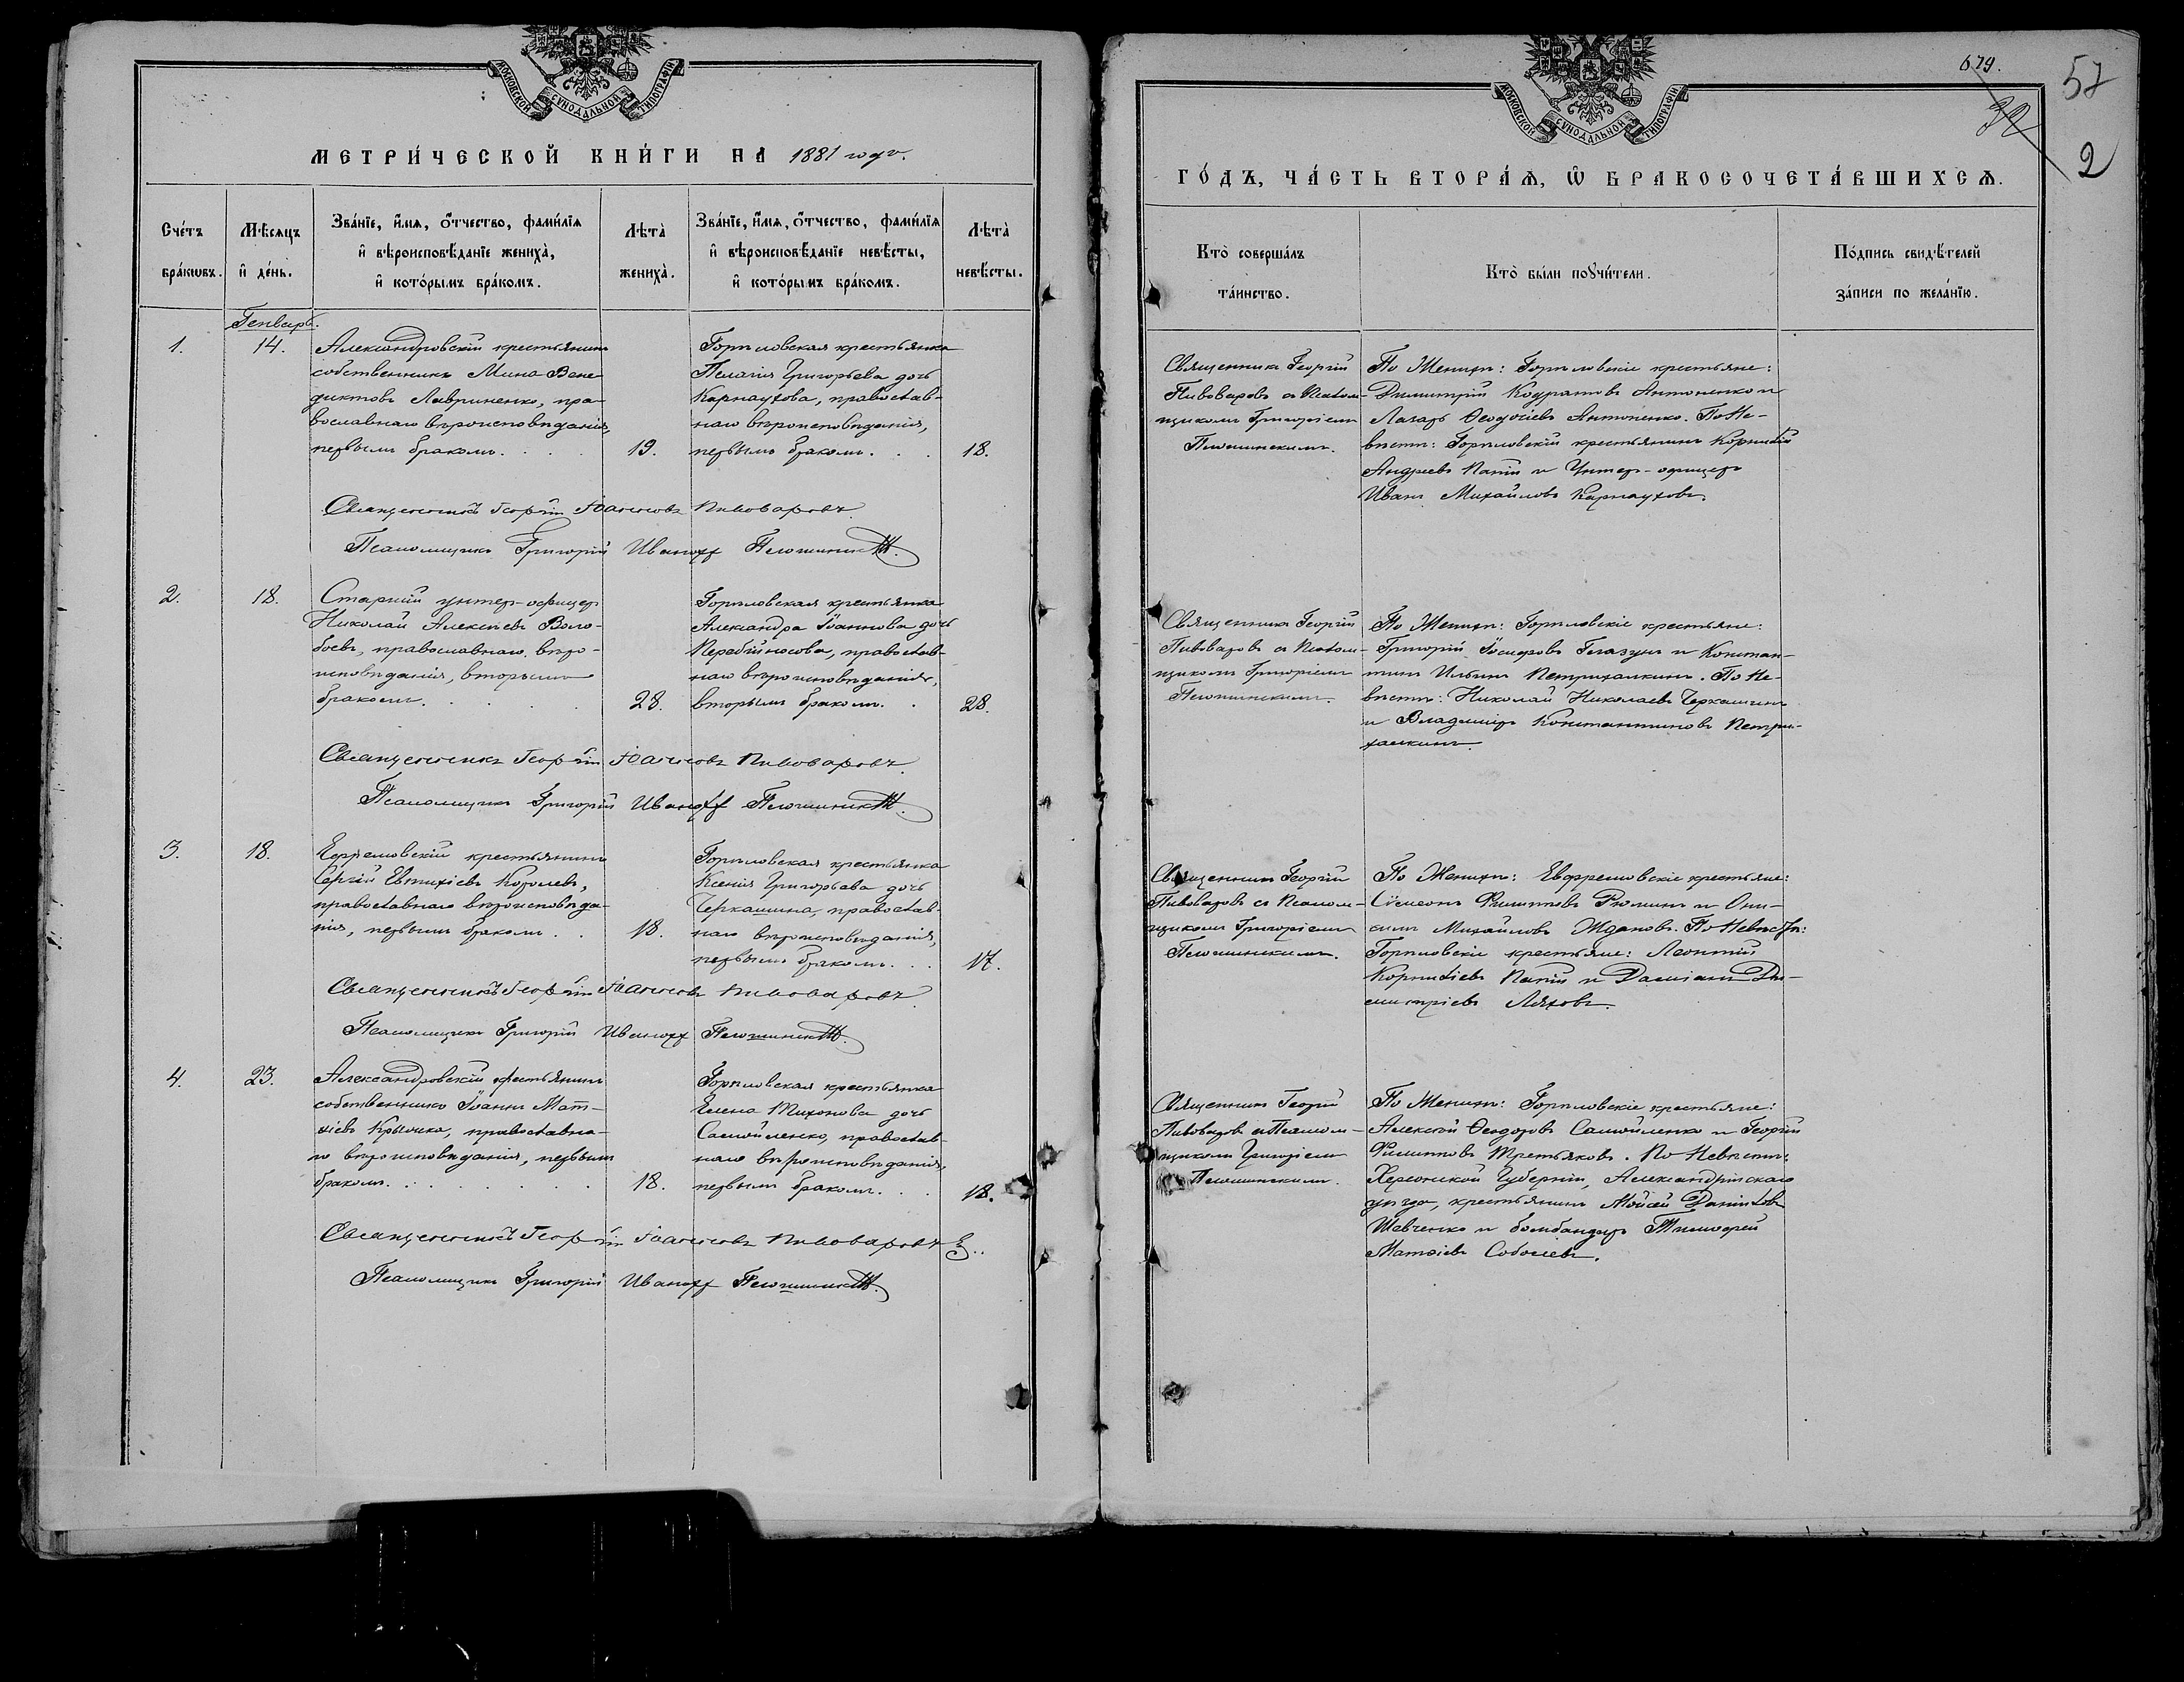 МОСКОВСКОЙ СѴНОДАЛЬНОЙ ТИПОГРАФІИ
МЕТРИ́ЧЕСКОЙ КНИ́ГИ НА 1881 годъ.
Сче́тъ бра́кωвъ.
Мѣ́сяцъ и҆ де́нь.
Зва́нїе, и҆́мѧ, ѻ҆́тчество, фами́лїѧ
и҆ вѣроисповѣ́данїе жениха̀,
и҆ кото́рымъ бра́комъ.
Лѣ́та̀ жениха̀.
Зва́нїе, и҆́мѧ, ѻ҆́тчество, фами́лїѧ
и҆ вѣроисповѣ́данїе невѣ́сты,
и҆ кото́рымъ бра́комъ.
Лѣ́та̀ невѣ́сты.
Генварь.
1.
14.
Александровскій крестьянинъ
собственникъ Мина Вене-
диктовъ Лавриненко, пра-
вославнаго вѣроисповѣданія,
первымъ бракомъ. . . .
19.
Горѣловская крестьянка
Пелагія Григорьева дочь
Карнаухова, православ-
наго вѣроисповѣданія,
первымъ бракомъ. . .
18.
Священникъ Георгій Іоанновъ Пивоваровъ.
Псаломщикъ Григорій Иванофф
2.
18.
Старшій унтер-офицеръ
Николай Алексѣевъ Воло-
боевъ, православнаго вѣро-
исповѣданія, вторымъ
бракомъ. . . . .
28.
Горѣловская крестьянка
Александра Іоаннова дочь
Перебійносова, православ-
наго вѣроисповѣданія,
вторымъ бракомъ. .
28.
Священникъ Георгій Іоанновъ Пивоваровъ.
Псаломщикъ Григорій Иванофф
3.
18.
крестьянинъ
Сергій Евтихіевъ Королевъ,
православнаго вѣроисповѣда-
нія, первымъ бракомъ . .
18.
Горѣловская крестьянка
Ксенія Григорьева дочь
Черкашина, православ-
наго вѣроисповѣданія,
первымъ бракомъ. . .
17.
Священникъ Георгій Іоанновъ Пивоваровъ
Псаломщикъ Григорій Иванофф
4.
23.
Александровскій крестьянинъ
собственникъ Іоаннъ Мат-
ѳіевъ православна-
го вѣроисповѣданія, первымъ
бракомъ. . . . . .
18.
Горѣловская крестьянка
Елена Тихонова дочь
Самойленко, православ-
наго вѣроисповѣданія,
первымъ бракомъ. . .
18.
Священникъ Георгій Іоанновъ Пивоваровъ
Псаломщикъ Григорій Иванофф
МОСКОВСКОЙ СѴНОДАЛЬНОЙ ТИПОГРАФІИ
679.
57
2
ГО́ДЪ, ЧА́СТЬ ВТОРА́Ѧ, Ѡ҆ БРАКОСОЧЕТА́ВШИХСѦ.
Кто̀ соверша́лъ
та́инство.
Кто̀ бы́ли порꙋчи́тели.
По́дпись свидѣ́телей
за́писи по жела́нїю.
Священникъ Георгій
Пивоваровъ съ Псалом-
щикомъ Григоріемъ
По Женихѣ: Горѣловскіе крестьяне:
Димитрій Кодратовъ Антоненко и
Лазарь Ѳеодосіевъ Антоненко. По Не-
вѣстѣ: Горѣловскій крестьянинъ Корнилій
Андреевъ Папій и Унтер-офицеръ
Иванъ Михайловъ Карнауховъ.
Священникъ Георгій
Пивоваровъ съ Псалом-
щикомъ Григоріемъ
По Женихѣ: Горѣловскіе крестьяне:
Григорій Іосифовъ Глазунъ и Констан-
тинъ Ильинъ Петрихалкинъ. По Не-
вѣстѣ: Николай Николаевъ Черкашинъ
и Владиміръ Константиновъ Петри-
халкинъ.
Священникъ Георгій
Пивоваровъ съ Псалом-
щикомъ Григоріемъ
По Женихѣ: Евфремовскіе крестьяне:
Сѵмеонъ Филипповъ Рюминъ и Они-
симъ Михайловъ Ждановъ. По Невѣстѣ:
Горѣловскіе крестьяне: Леонтій
Корниліевъ Папій и Даміанъ Ди-
митріевъ Ляховъ.
Священникъ Георгій
Пивоваровъ съ Псалом-
щикомъ Григоріемъ
По Женихѣ: Горѣловскіе крестьяне:
Алексѣй Ѳеодоровъ Самойленко и Георгій
Филипповъ Третьяковъ. По Невѣстѣ:
Херсонской Губерніи, Александрійскаго
уѣзда, крестьянинъ Мойсей Даніиловъ
Шевченко и бомбандиръ Тимофей
Матѳіевъ Соболевъ.